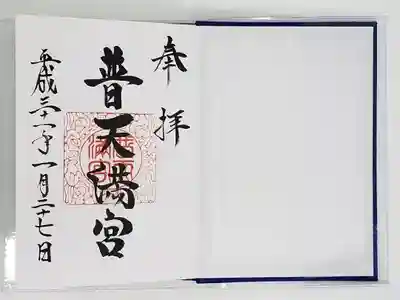 奉拝
普天満宮
平成三十一年一月二十七日